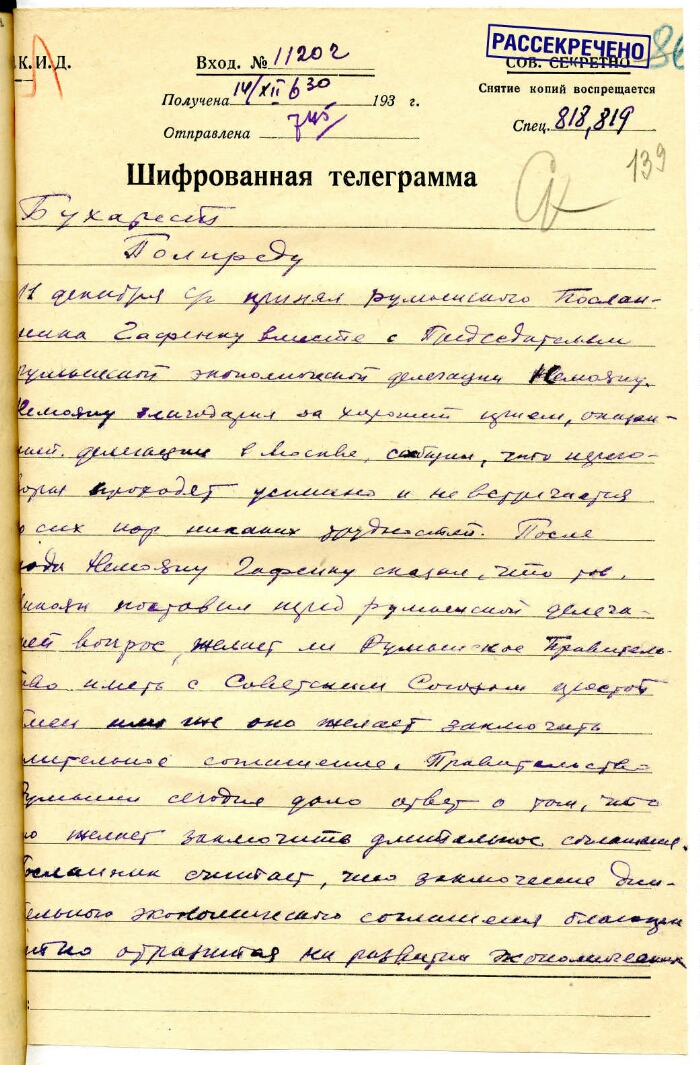 РАССЕКРЕЧЕНО
86
К.И.Д.
Вход. № 11202
СОВ. СЕКРЕТНО
Получена 14/XII 6 30 193 г.
Снятие копий воспрещается
Отправлена 745
Спец. 818, 819
139
Шифрованная телеграмма
Бухарест
Полпреду
11 декабря принял румынского Послан-
ника Гафенку вместе с Председателем
румынской экономической делегации Немояну.
Немояну благодарил за хороший прием, оказан-
ный делегации в Москве, сообщил, что перего-
воры проходят успешно и не встречается
до сих пор никаких трудностей. После
Немояну Гафенку сказал, что тов.
Микоян поставил перед румынской делега-
цией вопрос, желает ли Румынское Правитель-
ство иметь с Советским Союзом простой
обмен или же оно желает заключить
длительное соглашение. Правительство
Румынии сегодня дало ответ о том, что
оно желает заключить длительное соглашение.
Посланник считает, что заключение дли-
тельного экономического соглашения благопри
ятно отразится на развитии экономических